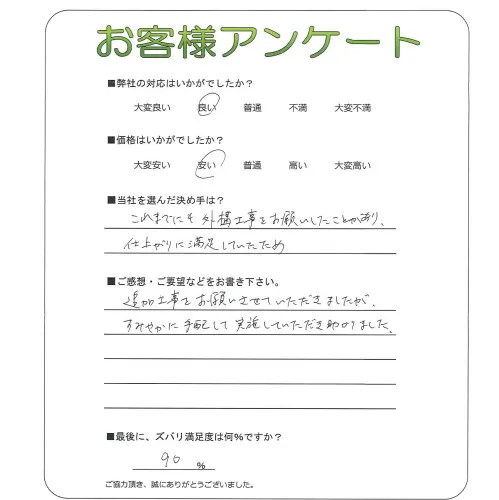 お客様アンケート
■弊社の対応はいかがでしたか？
大変良い 良い 普通 不満 大変不満
■価格はいかがでしたか？
大変安い 安い 普通 高い 大変高い
■当社を選んだ決め手は？
これまでにも外構工事をお願いしたことがあり、
仕上がりに満足していたため
■ご感想・ご要望などをお書き下さい。
追加工事をお願いさせていただきましたが、
すみやかに手配して実施していただき助かりました。
■最後に、ズバリ満足度は何％ですか？
90 ％
ご協力頂き、誠にありがとうございました。